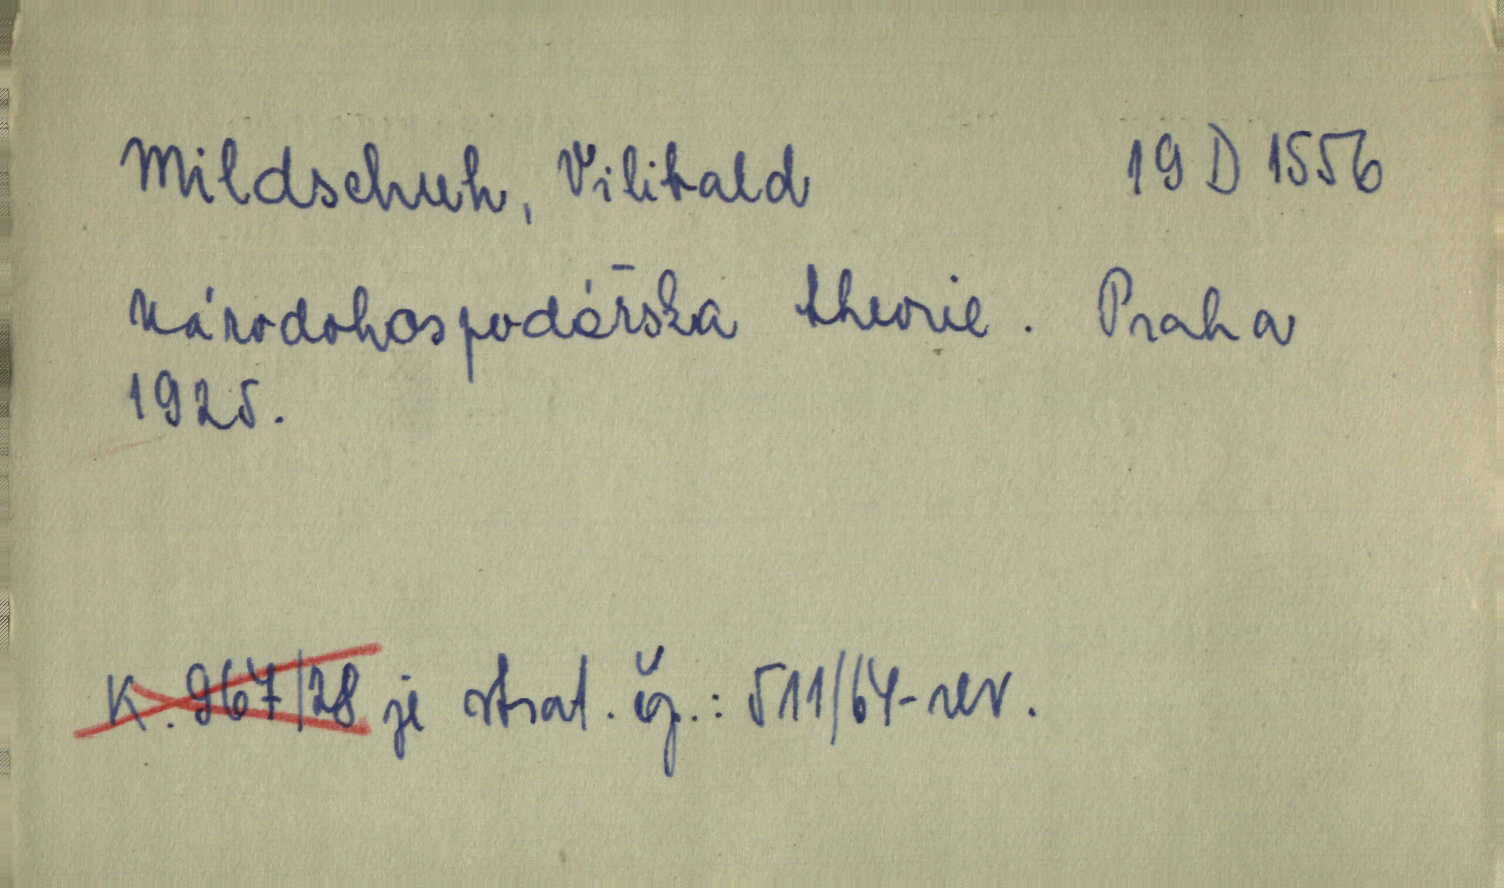 Mildschuh, Vilibald 19 D 1556
Národohospodářska theorie. Praha
1925.
K. 967/28 je strat. čp.: 511/64-rev.